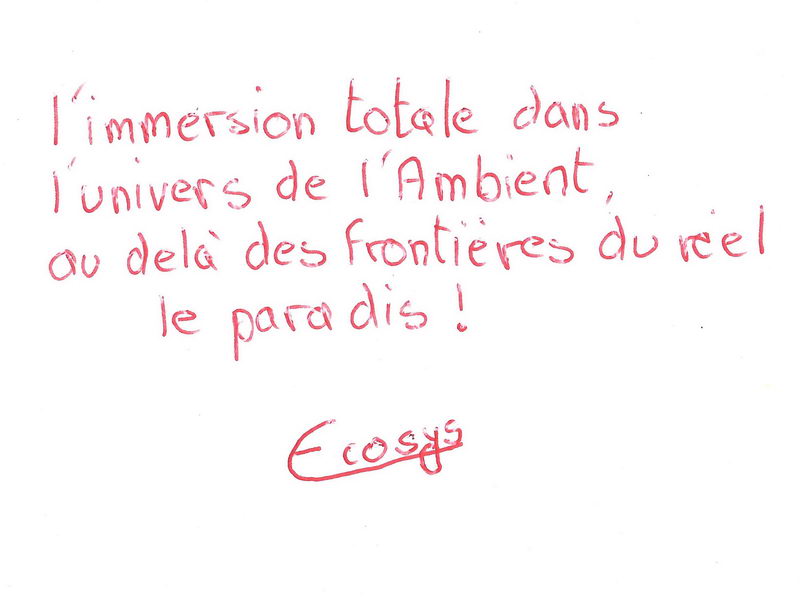 l'immersion totale dans
l'univers de l'Ambient,
au delà des frontières du réel
le paradis !
Ecosys